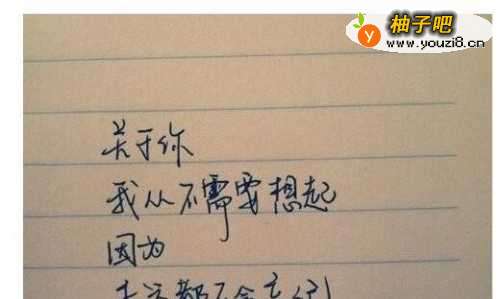 柚子吧
www.youzi8.cn
关于你
我从不需要想起
因为